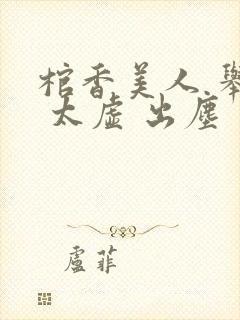 棺香美人 舉
太虛 出塵
盧菲